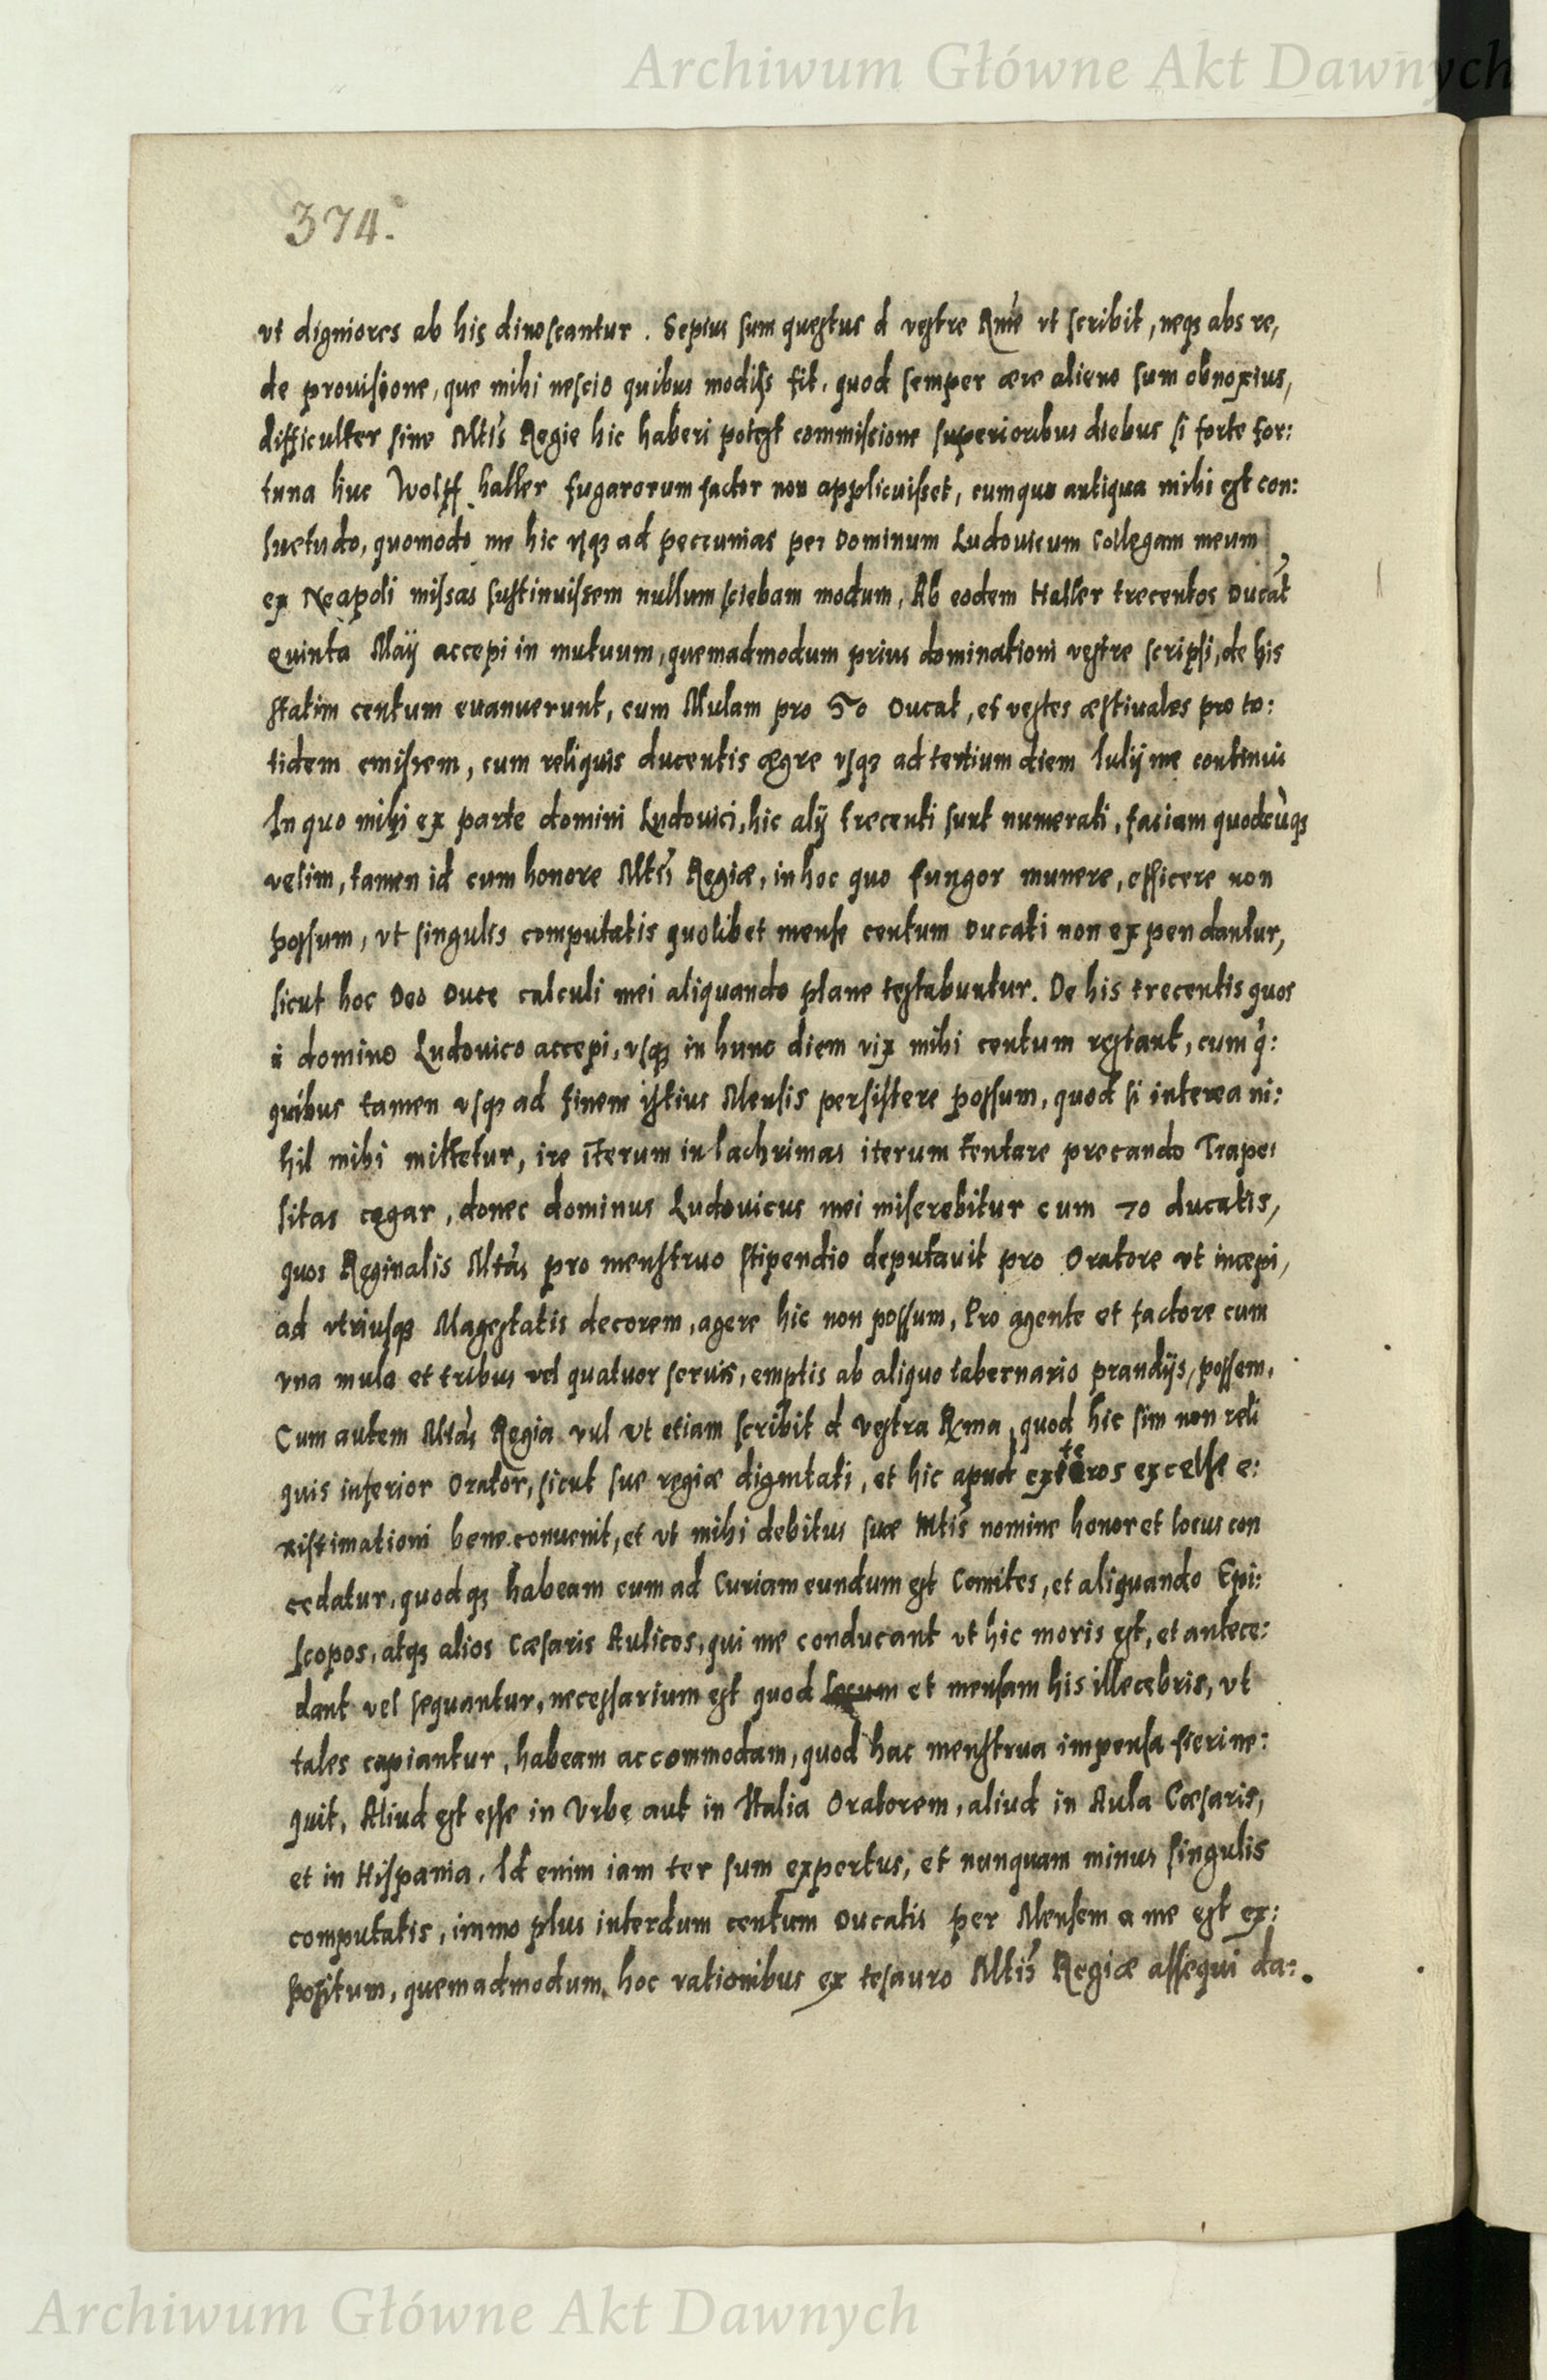 Archiwum Główne Akt Dawnych
374.
vt digniores ab his dinoscantur . Sepius sum questus d vestre Rme vt scribit , neqз abs re,
de prouisione, que mihi nescio quibus modis fit, quod semper ære alieno sum obnoxius,
difficulter sine Mtis Regie hic haberi potest commissione superioribus diebus si forte for:
tuna huc Wolff haller fugarorum factor non applicuisset, cumquo antiqua mihi est con:
suetudo, quomodo me hic vsqз ad peccunias per Dominum Ludouicum Collegam meum
ex Neapoli missas sustinuissem nullum sciebam modum, Ab eodem Haller trecentos Ducat
Quinta Maÿ accepi in mutuum, quemadmodum prius dominationi vestre scripsi, de his
statim centum euanuerunt, cum Mulam pro 50 Ducat, et vestes æstiuales pro to:
tidem emissem, cum reliquis ducentis ægre vsqз ad tertium diem Iulÿ me continui
In quo mihi ex parte domini Ludouici, hic alÿ trecenti sunt numerati, faciam quodcùqз
velim, tamen id cum honore Mtis Regiæ, in hoc quo fungor munere, efficere non
possum, vt singulis computatis quolibet mense centum Ducati non expendantur,
sicut hoc Deo Duce calculi mei aliquando plane testabuntur. De his trecentis quos
à domino Ludouico accepi, vsqз in hunc diem vix mihi centum restant, cum q:
quibus tamen vsqз ad finem istius Mensis persistere possum, quod si interea ni:
hil mihi mittetur, ire iterum in lachrimas iterum tentare precando Trape:
sitas cogar, donec dominus Ludouicus mei miserebitur cum 70 ducatis,
quos Reginalis Mtas pro menstruo stipendio deputauit pro Oratore vt incepi,
ad vtriusqз Magestatis decorem, agere hic non possum, Pro agente et factore cum
vna mula et tribus vel quatuor seruis, emptis ab aliquo tabernario prandÿs, possem.
Cum autem Mtas Regia vul vt etiam scribit d vestra Rma, quod hic sim non reli
quis inferior Orator, sicut sue regiæ dignitati, et hic apud exteros excelse e:
te
xistimationi bene conuenit, et vt mihi debitus suæ Mtis nomine honor et locus con
cedatur, quodqз habeam cum ad Curiam eundum est Comites, et aliquando Epi:
scopos, atqз alios Cæsaris Aulicos, qui me conducant vt hic moris est, et antece:
dant vel sequantur, necessarium est quod locum et mensam his illecebris, vt
tales capiantur, habeam accommodam, quod hac menstrua impensa fieri ne:
quit, Aliud est esse in Vrbe aut in Italia Oratorem, aliud in Aula Cæsaris,
et in Hispania. Id enim iam ter sum expertus, et nunquam minus singulis
computatis, immo plus interdum centum Ducatis per Mensem a me est ex:
positum, quemadmodum hoc rationibus ex tesauro Mtis Regiæ assequi da:.
Archiwum Główne Akt Dawnych